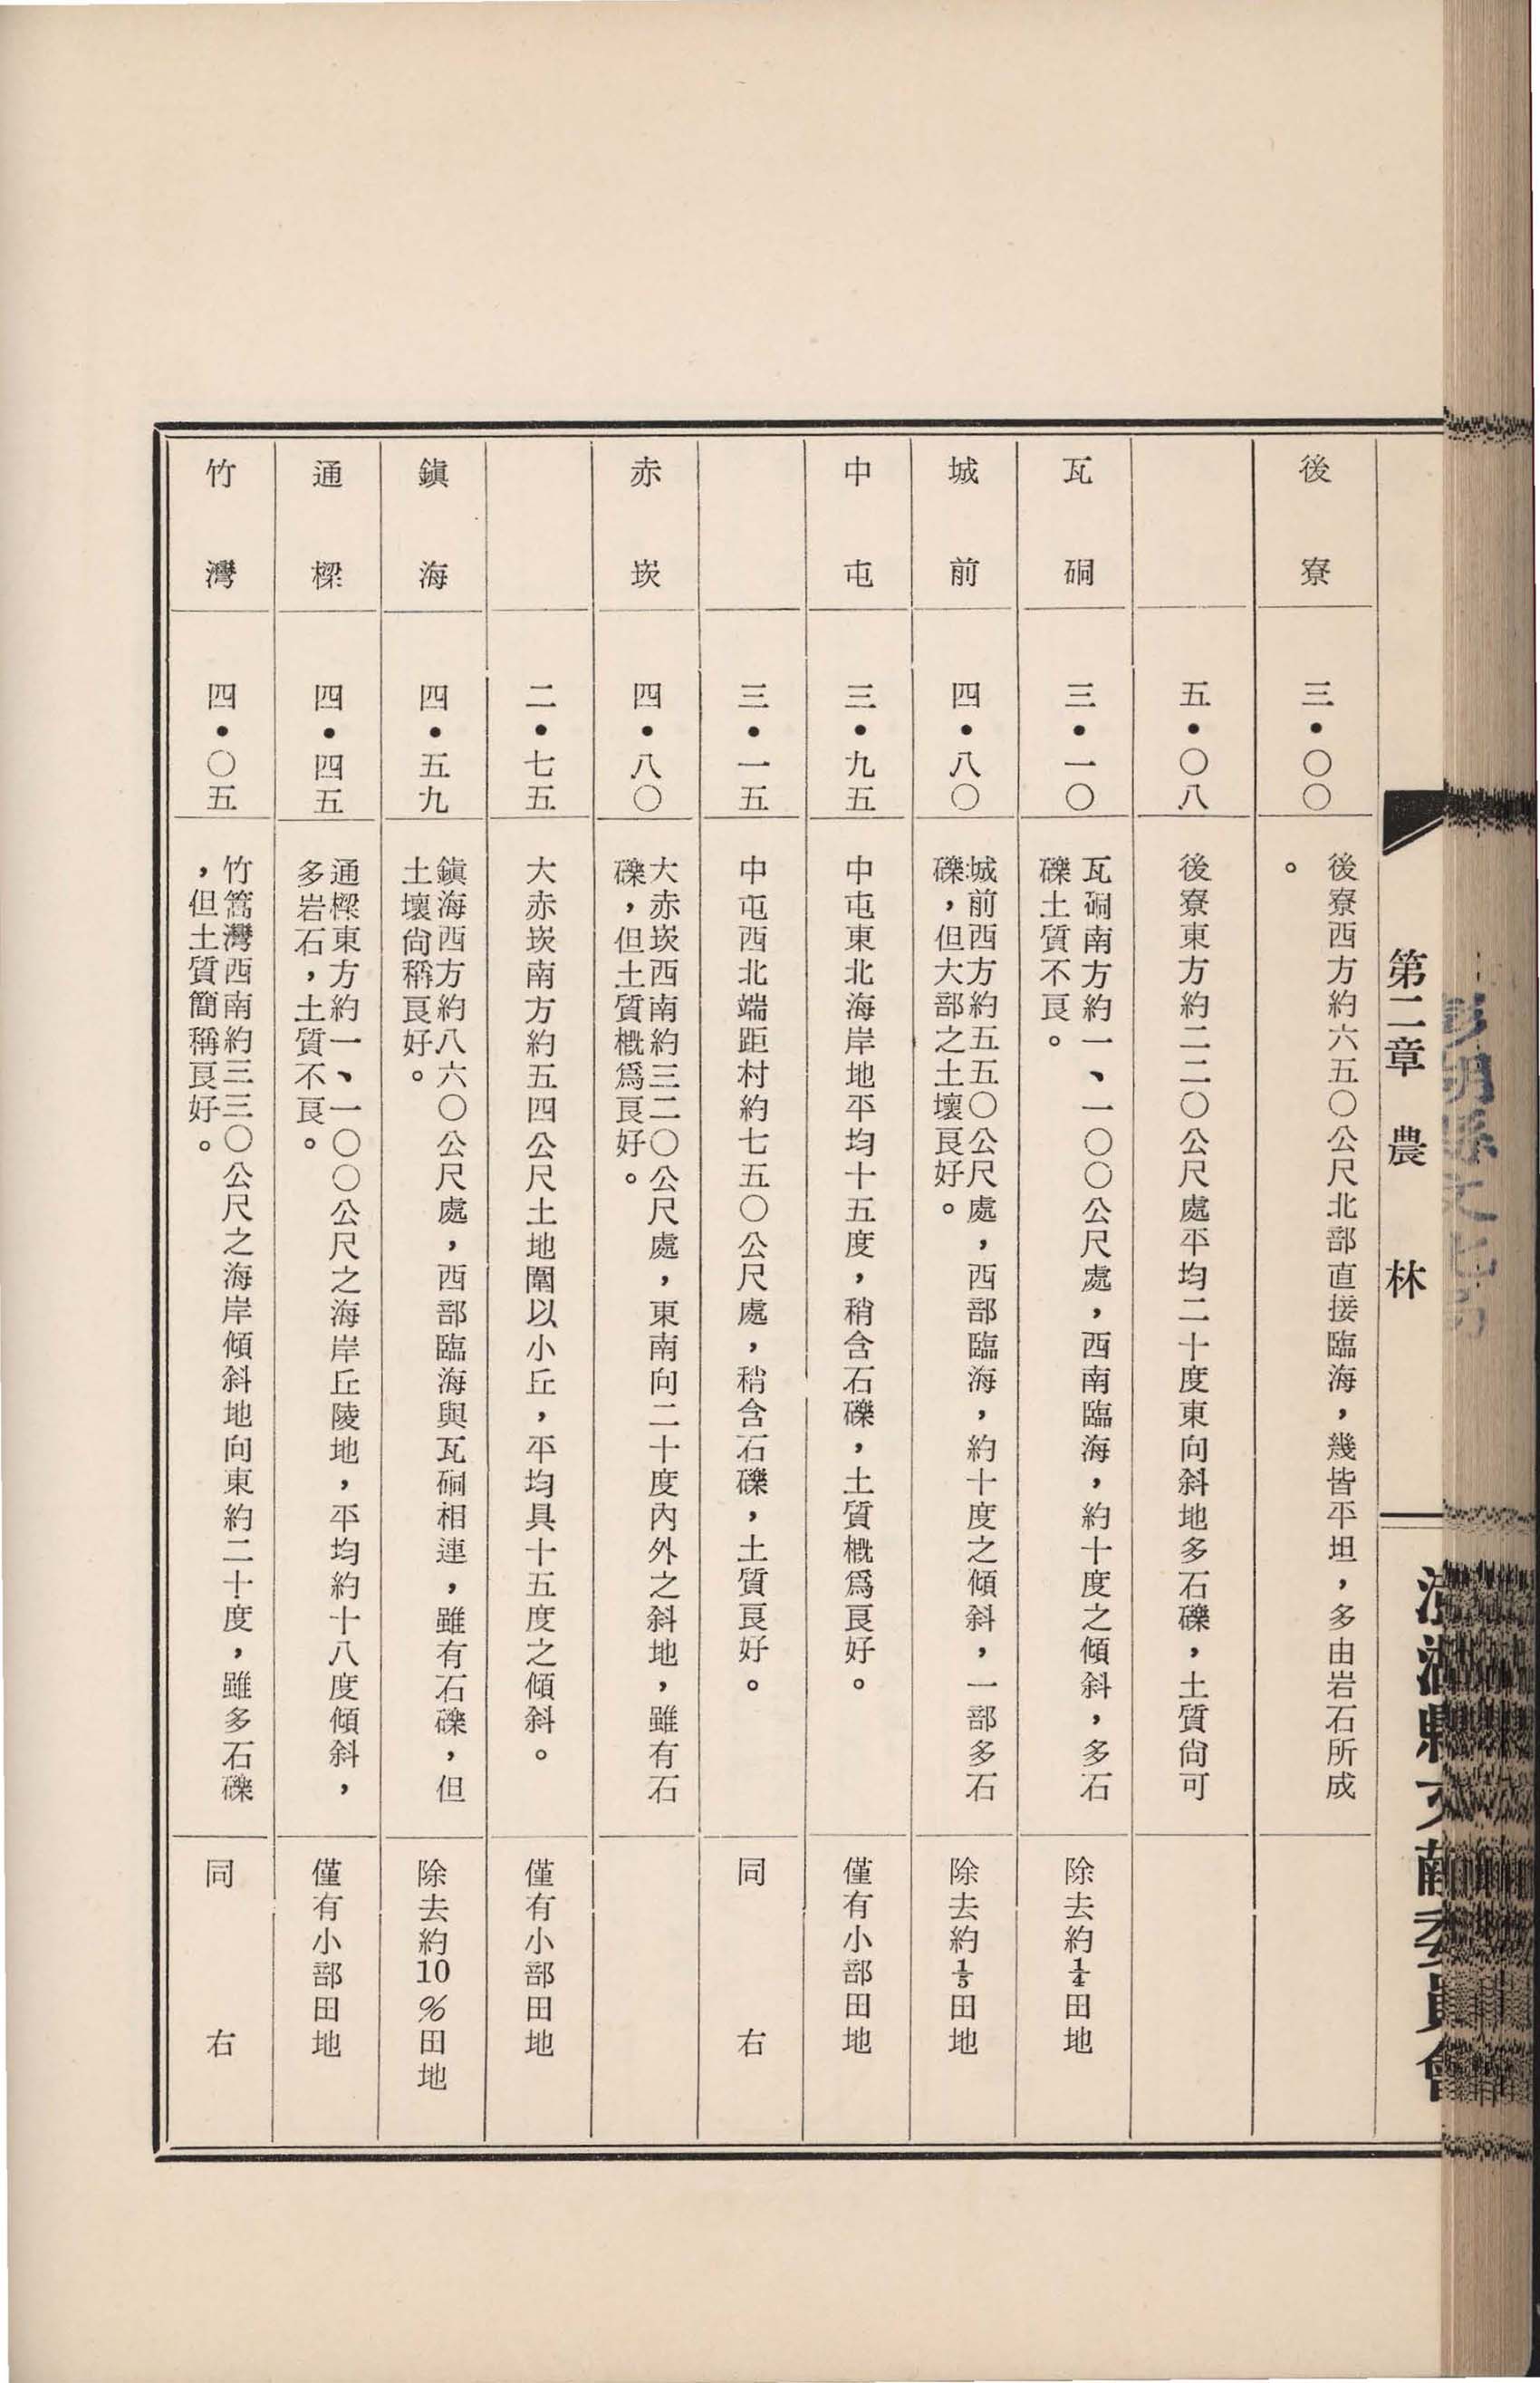 第二章 農 林
後寮
三•〇〇
後寮西方約六五〇公尺北部直接臨海，幾皆平坦，多由岩石所成
。
五•〇八
後寮東方約二二〇公尺處平均二十度東向斜地多石礫，土質尙可
瓦硐
三•一〇
瓦硐南方約一、一〇〇公尺處，西南臨海，約十度之傾斜，多石
礫土質不良。
除去約¼田地
城前
四•八〇
城前西方約五五〇公尺處，西部臨海，約十度之傾斜，一部多石
礫，但大部之土壤良好。
除去約⅓田地
中屯
三•九五
中屯東北海岸地平均十五度，稍含石礫，土質概爲良好。
僅有小部田地
三•一五
中屯西北端距村約七五〇公尺處，稍含石礫，土質良好。
同右
赤崁
四•八〇
大赤崁西南約三二〇公尺處，東南向二十度內外之斜地，雖有石
礫，但土質概爲良好。
二•七五
大赤崁南方約五四公尺土地圍以小丘，平均具十五度之傾斜。
僅有小部田地
鎭海
四•五九
鎭海西方約八六〇公尺處，西部臨海與瓦硐相連，雖有石礫，但
土壤尙稱良好。
除去約10%田地
通樑
四•四五
通樑東方約一、一〇〇公尺之海岸丘陵地，平均約十八度傾斜，
多岩石，土質不良。
僅有小部田地
竹灣
四•〇五
竹篙灣西南約三三〇公尺之海岸傾斜地向東約二十度，雖多石礫
，但土質簡稱良好。
同右